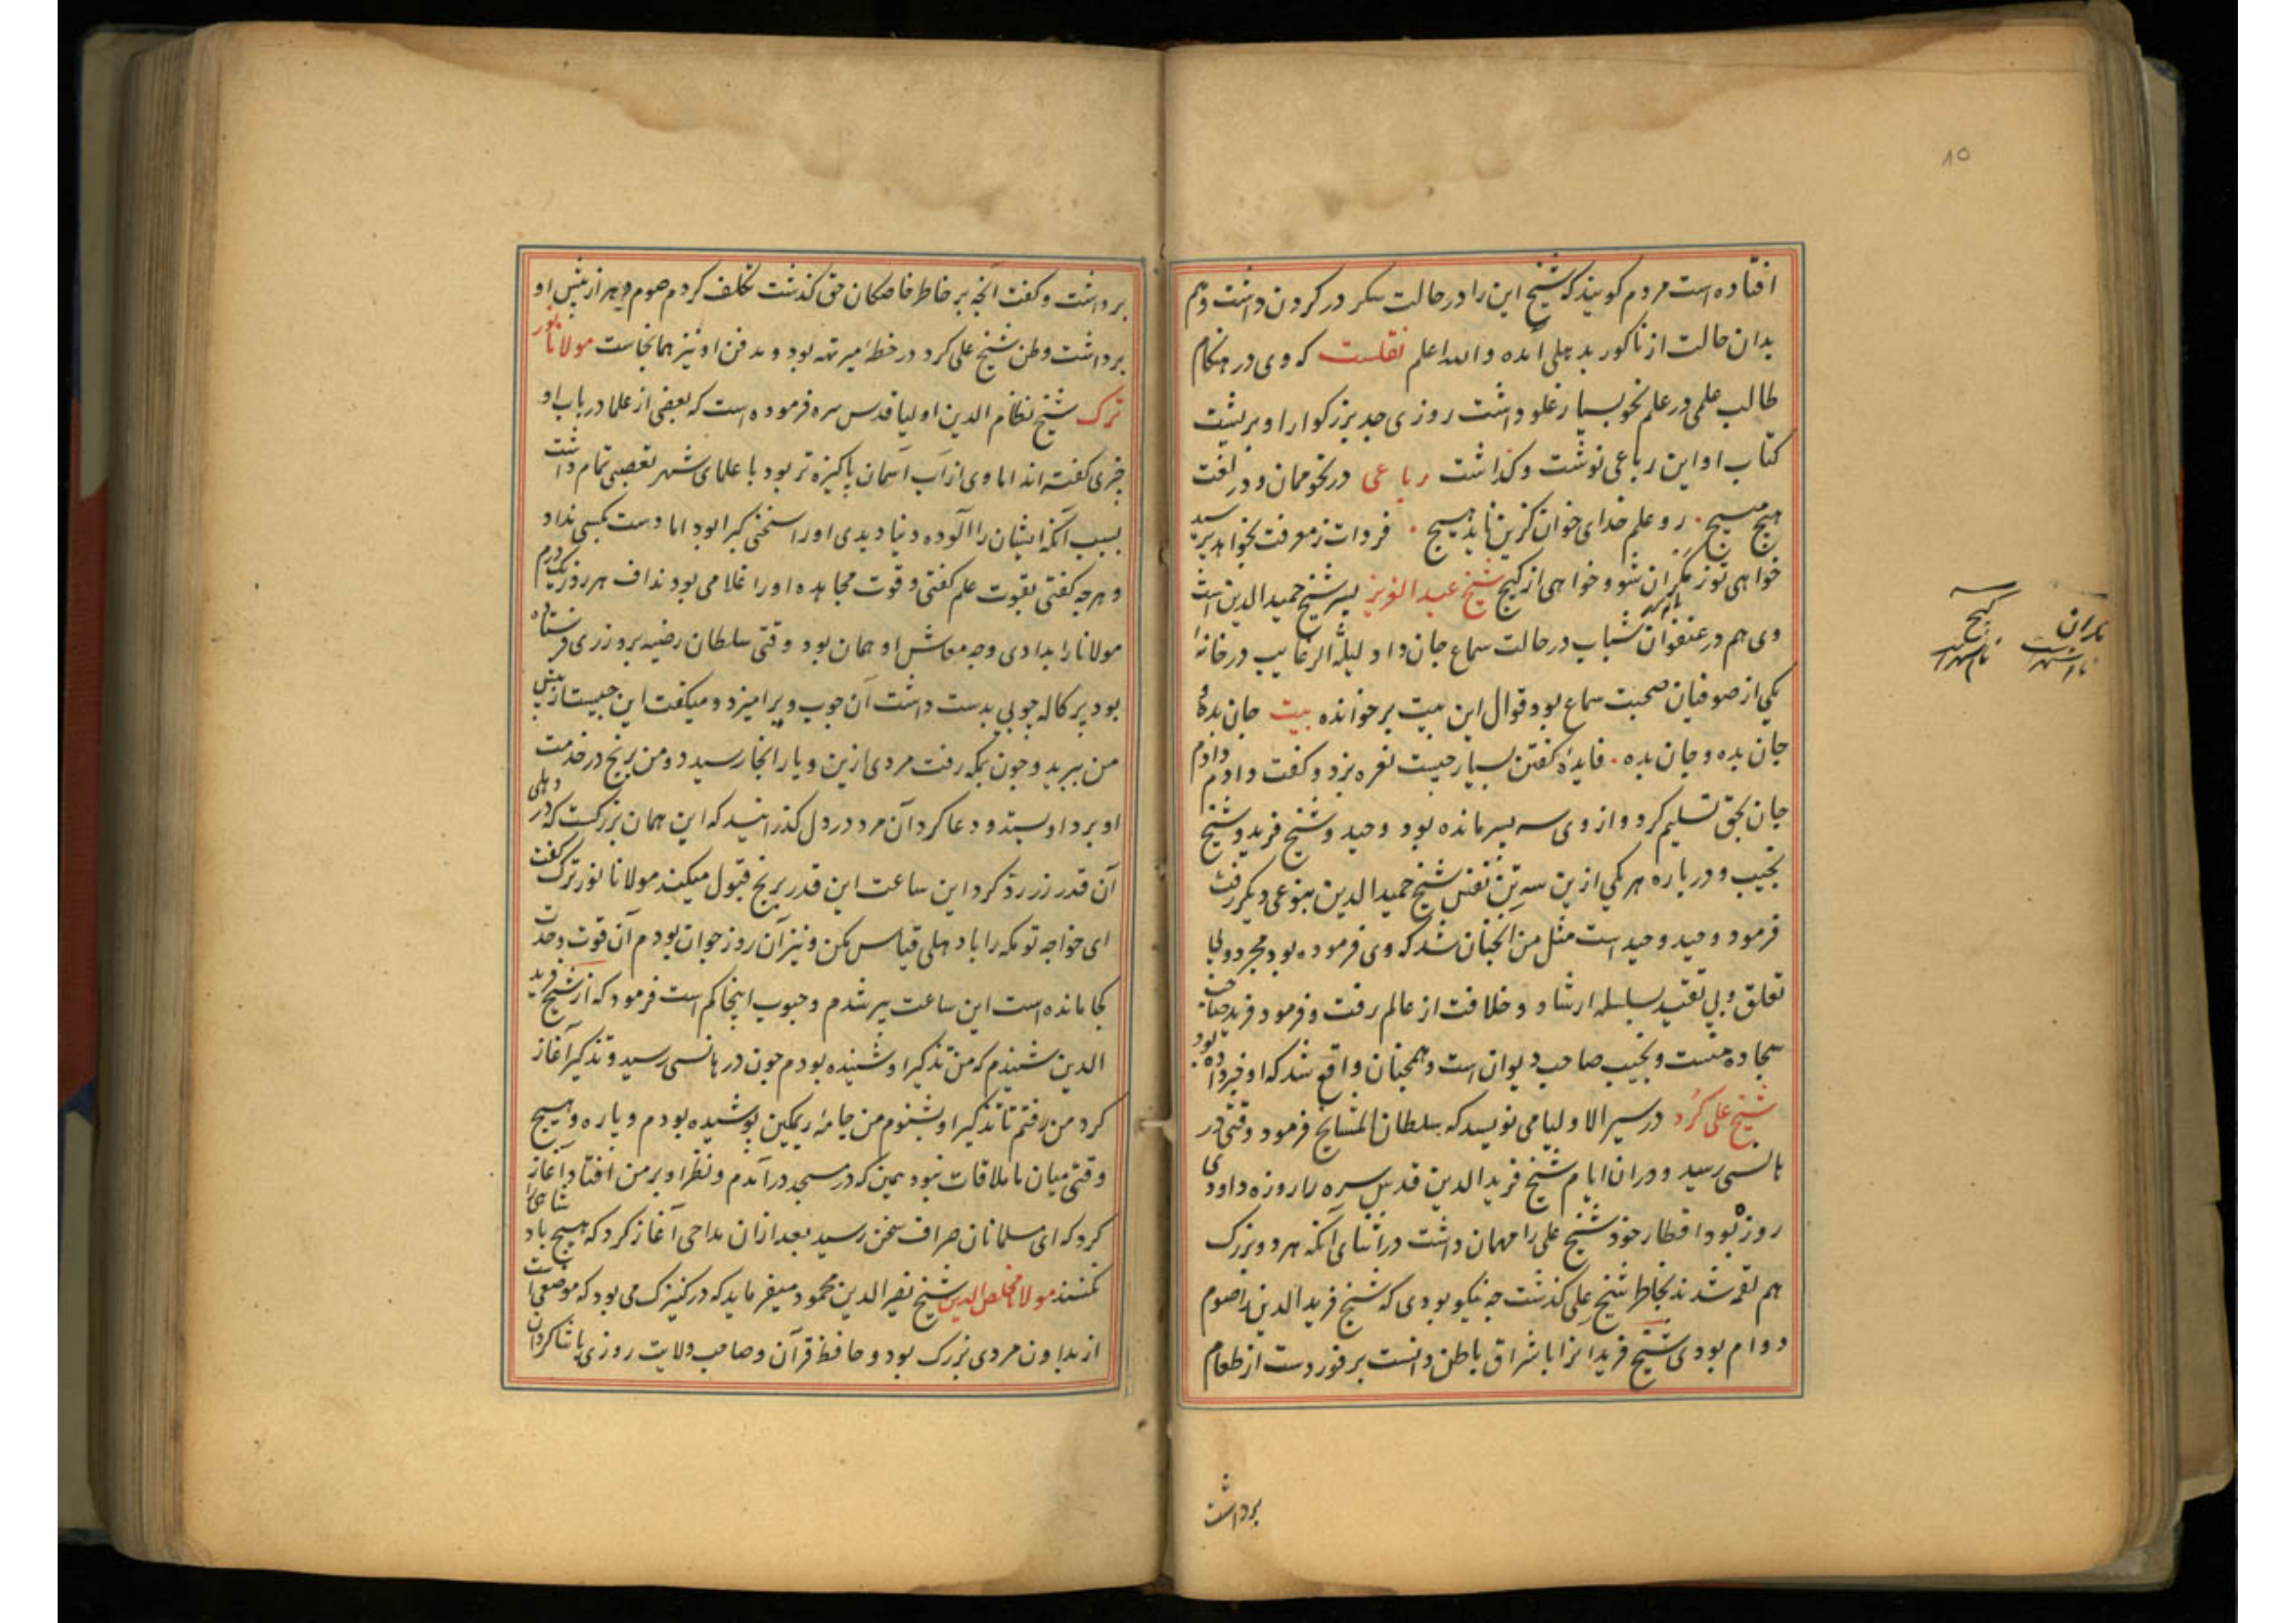 ۸۵
افتاده است مردم کویند که شیخ این را در حالت سکر در کردن داشت و هم
بدان حالت از ناکور بدهلی آمده والله اعلم نقلست که وی در هنکام
طالب علمی در علم نحو بسیار غلو داشت روزی جد بزرکوار او بر پشت
کتاب او این رباعی نوشت و کذاشت رباعی در نحو ممان و در لغت
هیچ مسیج . رو علم خدای خوان کزین ناید هیچ . فردات ز معرفت بخواهد پرسید
خواهی تو ز مکران شو و خواهی از کیج شیخ عبد العزیز پسر شیخ حمید الدین است
وی هم در عنفوان شباب در حالت سماع جان داد لیلة الرغایب در خانه
یکی از صوفیان صحبت سماع بود قوال این بیت بر خوانده بیت جان بده و
جان بده و جان بده . فایدهٔ کفتن بسیار چیست نعره بزد و کفت دادم دادم
جان بحق تسلیم کرد و از وی سه پسر مانده بود وحید و شیخ فرید و شیخ
نجیب و درباره هر یکی ازین سه تن نفس شیخ حمید الدین بنوعی دیکر رفت
فرمود وحید وحید است مثل من آنچنان شد که وی فرموده بود مجرد و بی
تعلق و بی تقید بسلسله ارشاد و خلافت از عالم رفت و فرمود فرید صاحب
سجاده منست و نجیب صاحب دیوان است و همچنان واقع شد که او فرموده بود
شیخ علی کُرد در سیر الاولیا می نویسد که سلطان المشایخ فرمود وقتی در
هانسی رسید و در ان ایام شیخ فرید الدین قدس سره را روزه داودی
روزه بود افطار خود شیخ علی را مهمان داشت در اثنای آنکه هر دو بزرک
هم لقمه شدند بخاطر شیخ علی کذشت چه نیکو بودی که شیخ فرید الدین را صوم
دوام بودی شیخ فرید انرا باشراق باطن دانست بر فور دست از طعام
برداشت
مکران
نام شهریست
کیج
نام شهریست
برداشت و کفت آنچه بر خاطر خاصکان حق کذشت تکلف کردم صوم دهر از پیش او
برداشت وطن شیخ علی کرد در خطهٔ میرتهه بود و مدفن او نیز همانجاست مولانا نور
ترک شیخ نظام الدین اولیا قدس سره فرموده است که بعضی از علما در باب او
چیزی کفته اند اما وی از آب آسمان پاکیزه تر بود با علمای شهر تعصبی تمام داشت
بسبب آنکه ایشان را آلوده دنیا دیدی او را سخنی کیرا بود اما دست بکسی نداد
و هرچه کفتی بقوت علم کفتی و قوت مجاهده او را غلامی بود نداف هر روز یکدرم
مولانا را بدادی وجه معاش او همان بود وقتی سلطان رضیه برو زری فرستاده
بود پر کاله چوبی بدست داشت آن چوب ویرا میزد و میکفت این چیست از پیش
من ببرید و چون بمکه رفت مردی ازین دیار آنجا رسید دو من برنج در خدمت
او برد او بستد و دعا کرد آن مرد در دل کذرانید که این همان بزرکست که در دهلی
آن قدر زر رد کرد این ساعت این قدر برنج قبول میکند مولانا نور ترک کفت
ای خواجه تو مکه را با دهلی قیاس مکن و نیز آن روز جوان بودم آن قوت و حدت
کجا مانده است این ساعت پیر شدم و حبوب اینجا کم است فرمود که از شیخ فرید
الدین شنیدم که من تذکیر او شنیده بودم چون در هانسی رسید و تذکیر آغاز
کرد من رفتم تا تذکیر او بشنوم من جامهٔ ریمکین پوشیده بودم و پاره و هیچ
وقتی میان ما ملاقات نبود همین که در مسجد درآمدم و نظر او بر من افتاد آغاز
کرد که ای مسلمانان صراف سخن رسید بعد ازان مداحی آغاز کرد که هیچ پادشاهی را
نکنند مولانا مخلص الدین شیخ نصیر الدین محمود میفرماید که در کنیزک می بود که موضعی است
از بداون مردی بزرک بود و حافظ قرآن و صاحب ولایت روزی با شاکردان